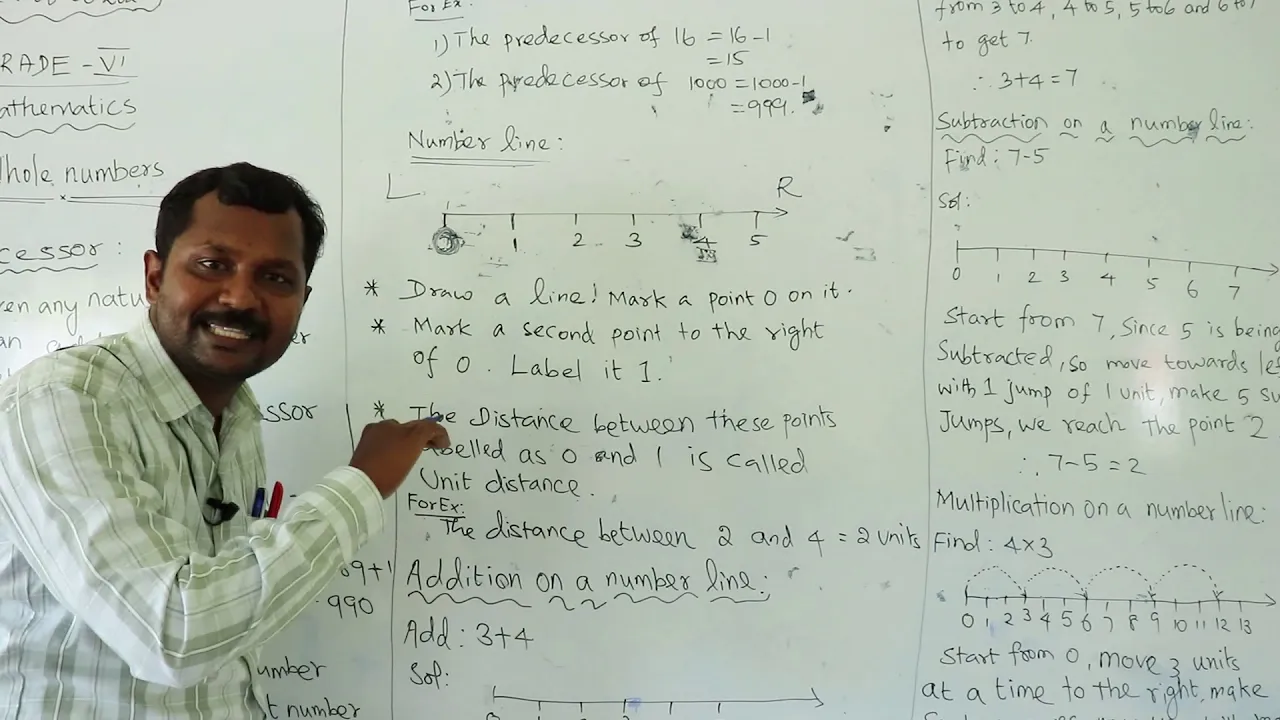 RADE - VI
athematics
hole numbers
cessor :
ven any natu
ssor
89+1
990
umber
t number
For Ex:
1) The predecessor of 16 = 16-1
= 15
2) The predecessor of 1000 = 1000-1
= 999.
Number line:
L R
1 2 3 4 5
* Draw a line! Mark a point 0 on it.
* Mark a second point to the right
of 0. Label it 1.
* The Distance between these points
labelled as 0 and 1 is called
Unit distance.
For Ex:
The distance between 2 and 4 = 2 units
Addition on a number line:
Add: 3+4
Sol:
from 3 to 4, 4 to 5, 5 to 6 and 6 to 7
to get 7.
∴ 3+4 = 7
Subtraction on a number line:
Find: 7-5
Sol:
0 1 2 3 4 5 6 7
Start from 7, Since 5 is being
Subtracted, so move towards lef
with 1 jump of 1 unit, make 5 su
Jumps, we reach the point 2
∴ 7-5 = 2
Multiplication on a number line:
Find: 4×3
0 1 2 3 4 5 6 7 8 9 10 11 12 13
Start from 0, move 3 units
at a time to the right, make